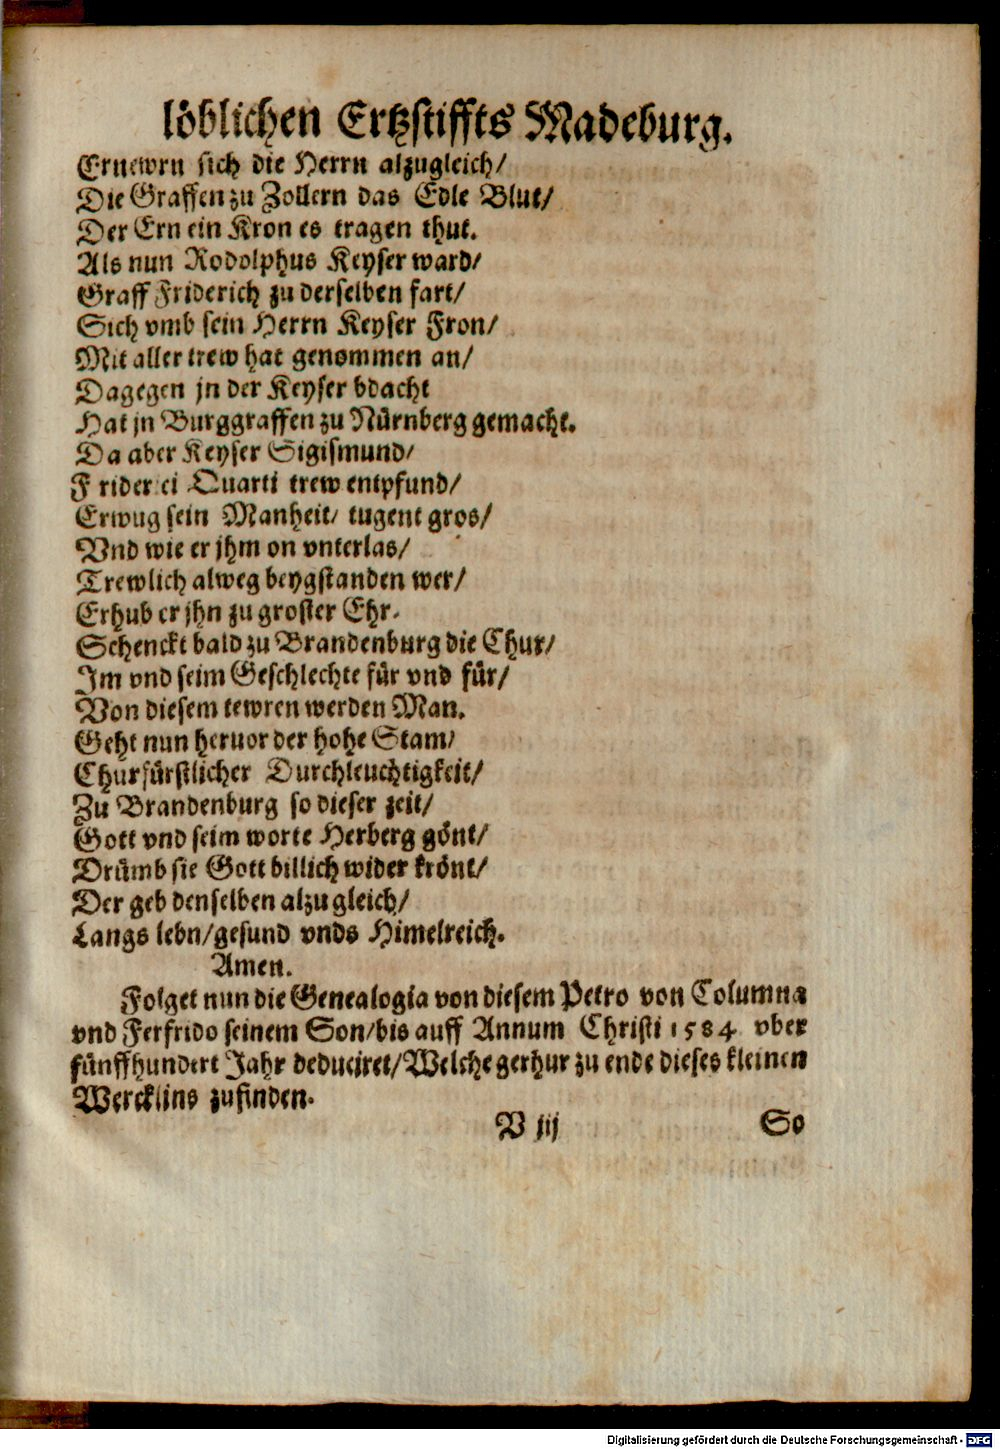 löblichen Ertzstiffts Madeburg.
Ernewrn sich die Herrn alzugleich/
Die Graffen zu Zollern das Edle Blut/
Der Ern ein Kron es tragen thut.
Als nun Rodolphus Keyser ward/
Graff Friderich zu derselben fart/
Sich vmb sein Herrn Keyser Fron/
Mit aller trew hat genommen an/
Dagegen jn der Keyser bdacht
Hat jn Burggraffen zu Nürnberg gemacht.
Da aber Keyser Sigismund/
Friderici Quarti trew entpfund/
Erwug sein Manheit/ tugent gros/
Vnd wie er jhm on vnterlas/
Trewlich alweg beygstanden wer/
Erhub er jhn zu groster Ehr.
Schenckt bald zu Brandenburg die Chur/
Im vnd seim Geschlechte für vnd für/
Von diesem tewren werden Man.
Geht nun heruor der hohe Stam/
Churfürstlicher Durchleuchtigkeit/
Zu Brandenburg so dieser zeit/
Gott vnd seim worte Herberg gönt/
Drümb sie Gott billich wider krönt/
Der geb denselben alzugleich/
Langs lebn/gesund vnds Himelreich.
Amen.
Folget nun die Genealogia von diesem Petro von Columna
vnd Ferfrido seinem Son/bis auff Annum Christi 1584 vber
fünffhundert Jahr deduciret/Welche gerhur zu ende dieses kleinen
Wercklins zufinden.
V iij So
Digitalisierung gefördert durch die Deutsche Forschungsgemeinschaft - DFG